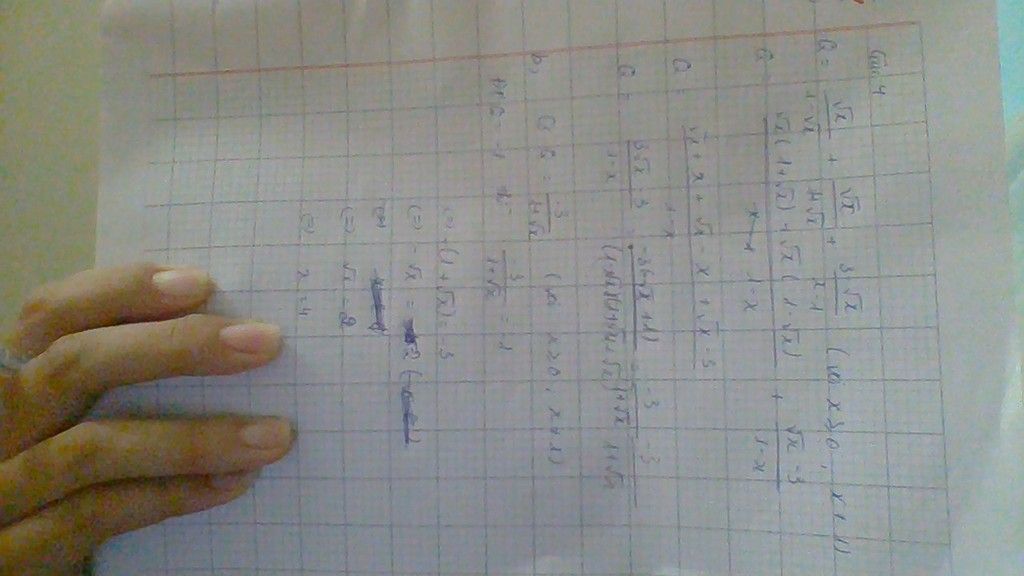 Câu 4
Q = √x / 1-√x + √x / 1+√x + 3-√x / x-1 (với x ≥ 0, x ≠ 1)
Q = √x(1+√x) + √x(1-√x) / 1-x + √x-3 / 1-x
Q = √x + x + √x - x + √x - 3 / 1-x
Q = 3√x - 3 / 1-x = = -3 / 1+√x
b, Q = -3 / 1+√x (với x ≥ 0, x ≠ 1)
Q = -1 -3 / 1+√x = -1
(=) -(1+√x) = -3
(=) -√x = -2
(=) √x = 2
(=) x = 4